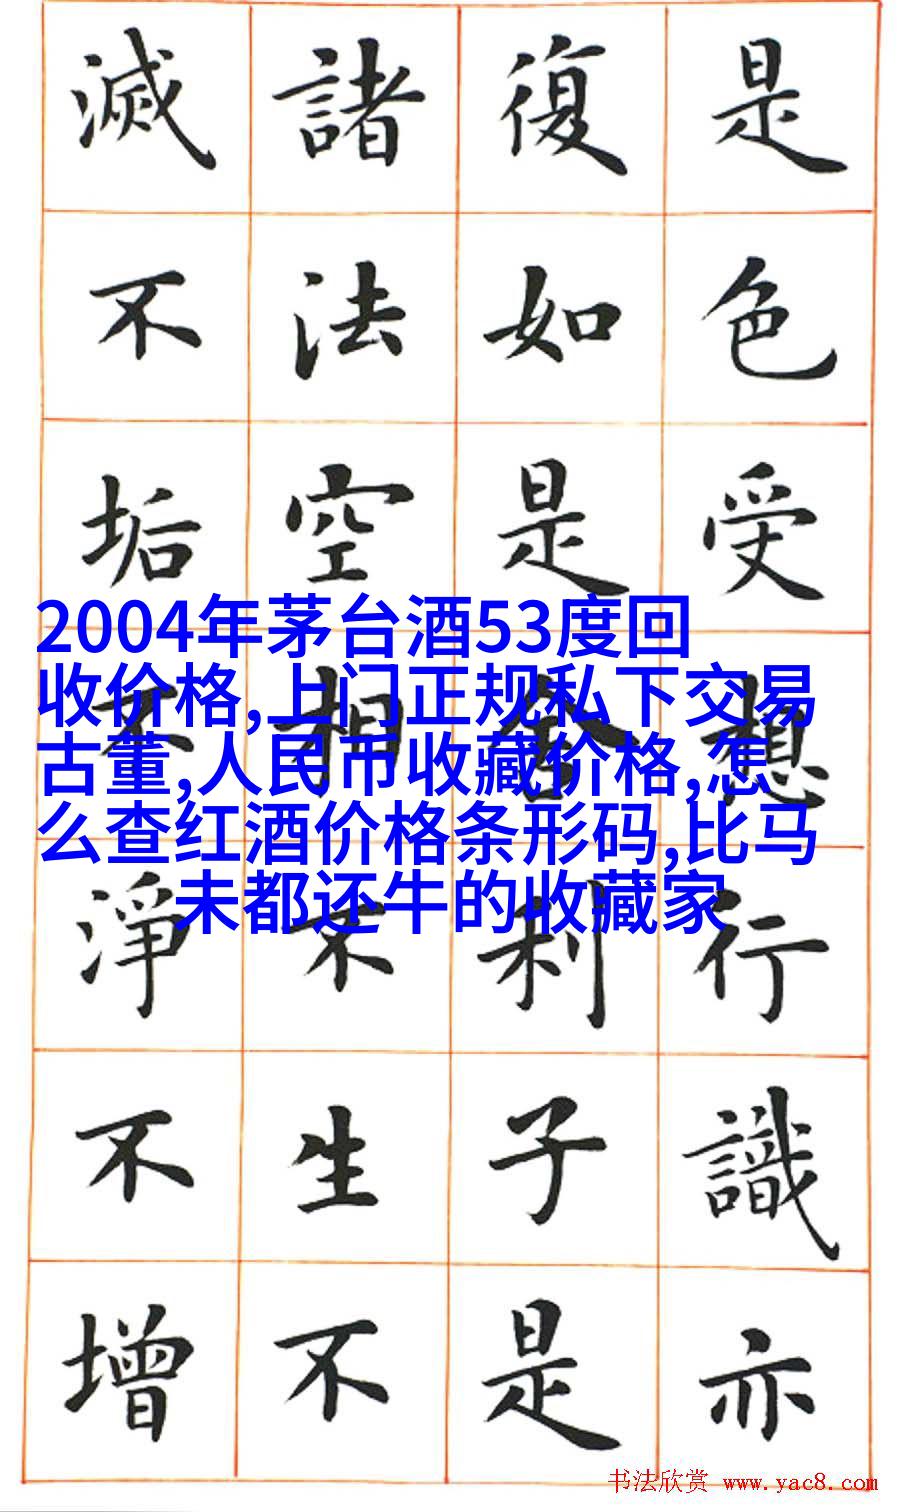 是色受想行識亦
復如是舍利子是
諸法空相不生不
滅不垢不淨不增
2004年茅台酒53度回
收价格,上门正规私下交易
古董,人民币收藏价格,怎
么查红酒价格条形码,比马
未都还牛的收藏家
书法欣赏 www.yac8.com